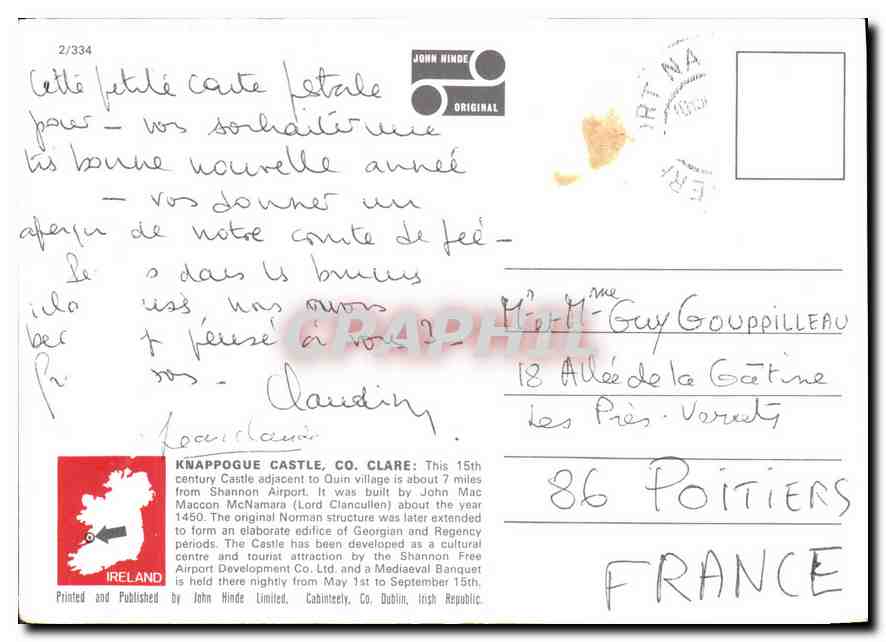 2/334
JOHN HINDE
ORIGINAL
Cette petite carte postale
pour – vos souhaiter une
très bonne nouvelle année
– vos donner un
aperçu de notre comte de fée –
s dans les brumes
nous avons
pensé à vous ? –
Claudine
Jean Claude
KNAPPOGUE CASTLE, CO. CLARE: This 15th
century Castle adjacent to Quin village is about 7 miles
from Shannon Airport. It was built by John Mac
Maccon McNamara (Lord Clancullen) about the year
1450. The original Norman structure was later extended
to form an elaborate edifice of Georgian and Regency
periods. The Castle has been developed as a cultural
centre and tourist attraction by the Shannon Free
Airport Development Co. Ltd. and a Mediaeval Banquet
is held there nightly from May 1st to September 15th.
IRELAND
Printed and Published by John Hinde Limited, Cabinteely, Co. Dublin, Irish Republic.
RT NA
Mr et Mme Guy GOUPPILLEAU
18 Allée de la Gâtine
Les Prés
86 POITIERS
FRANCE
CPAPHIL